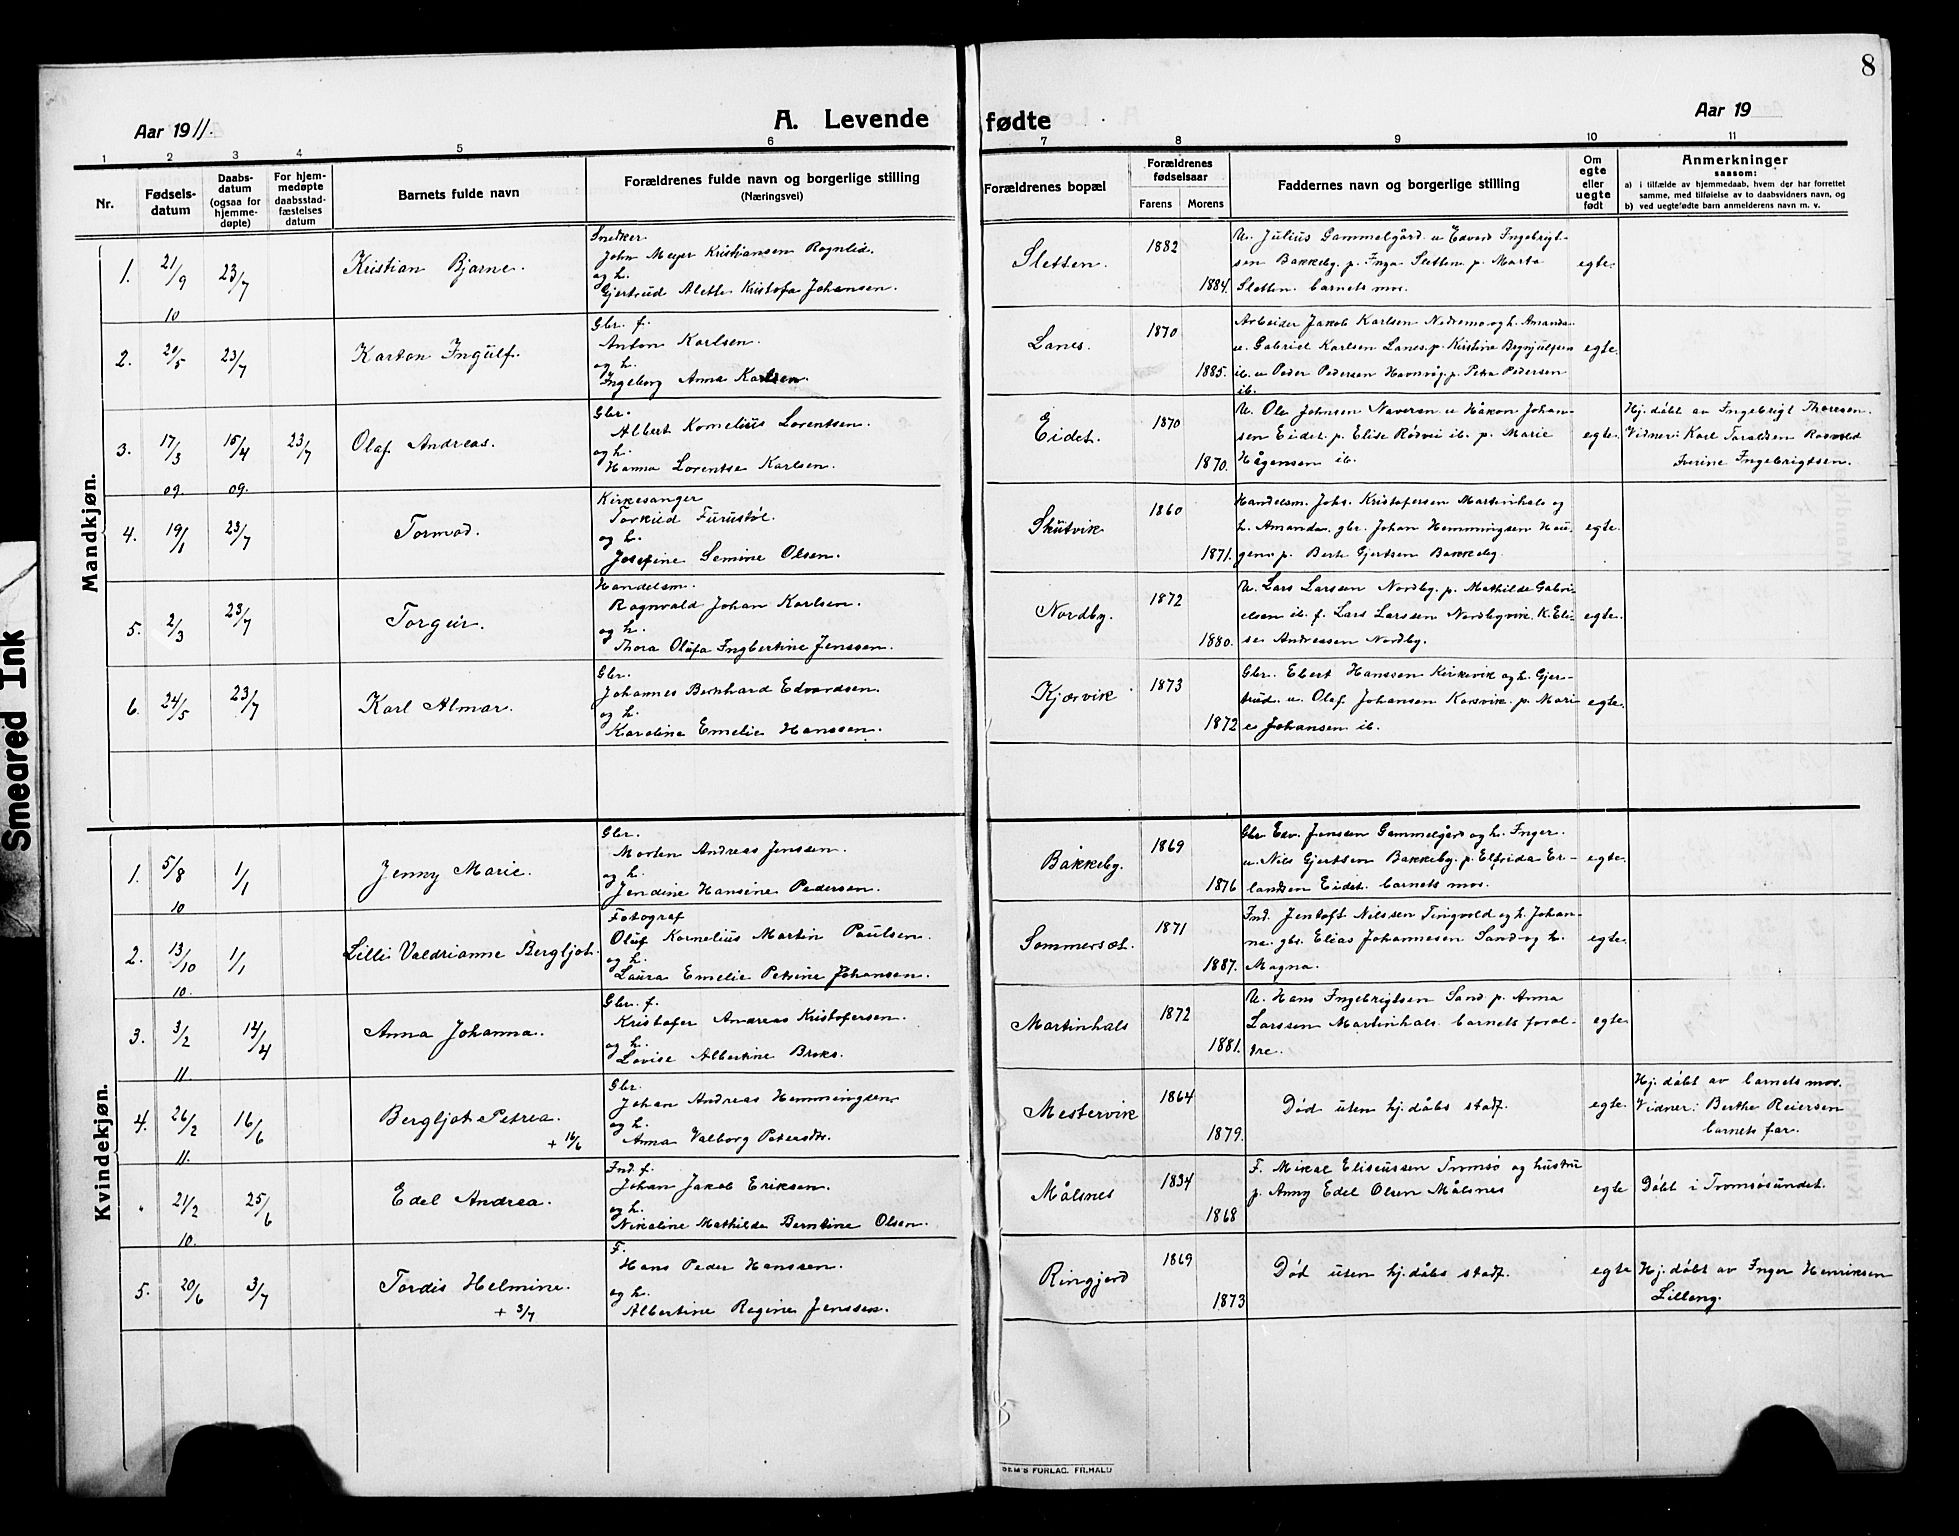 8
Aar 1911.
A. Levende fødte
Aar 19
1 2 3 4 5 6 7 8 9 10 11
Nr.
Fødsels-
datum
Daabs-
datum
(ogsaa for
hjemme-
døpte)
For hjem-
medøpte
daabsstad-
fæstelses
datum
Barnets fulde navn
Forældrenes fulde navn og borgerlige stilling
(Næringsvei)
Forældrenes bopæl
Forældrenes
fødselsaar
Farens Morens
Faddernes navn og borgerlige stilling
Om
egte
eller
uegte
født
Anmerkninger
saasom:
a) i tilfælde av hjemmedaab, hvem der har forrettet
samme, med tilføielse av to daabsvidners navn, og
b) ved uegtefødte barn anmelderens navn m. v.
Mandkjøn.
1. 21/9 23/7 Kristian Bjarne.
10
Snedker
John Meyer Kristiansen Rognlid.
og h.
Gjertrud Alette Kristofa Johansen.
Sletten. 1882 1884.
U. Julius Gammelgård u Edvard Ingebrigt-
sen Bakkeby. p. Inga Sletten p. Marta
Sletten. barnets mor.
egte.
2. 20/5 23/7 Karton Ingulf.
Gbr. f.
Anton Karlsen.
og h.
Ingeborg Anna Karlsen.
Lanes. 1870 1885.
Arbeider Jakob Karlsen Nedremo og h. Amanda
u. Gabriel Karlsen Lanes. p. Kristine Brynjulfsen
ib. u Peder Pedersen Havnvåg. p. Petra Pedersen
ib.
egte.
3. 17/3 15/4 23/7 Olaf Andreas.
09. 09.
Gbr.
Albert Kornelius Lorentsen.
og h.
Hanna Lorentse Karlsen.
Eidet. 1870 1870.
U. Ole Johnsen Naveren u Håkon Johan-
sen Eidet. p. Elise Rødvei ib. p. Marie
Hågensen ib.
egte.
Hj. døbt av Ingebrigt Thoresen.
Vidner: Karl Toraldsen Rosvold
Iverine Ingebrigtsen.
4. 19/1 23/7 Tormod.
Kirkesanger
Torkild Furustøl.
og h.
Josefine Semine Olsen.
Skutvik 1860 1871.
Handelsm. Johs. Kristofersen Martinhals og
h. Amanda. gbr. Johan Hemmingsen Hau-
gen. p. Berte Gjertsen Bakkeby.
egte.
5. 2/3 23/7 Torgeir.
Handelsm.
Ragnvald Johan Karlsen.
og h.
Thora Olufa Ingbertine Jenssen.
Nordby. 1872 1880.
U. Lars Larssen Nordby. p. Mathilde Gabri-
elsen ib. f. Lars Larssen Nordbyvik. K. Eli-
se Andreassen Nordby.
egte.
6. 24/5 23/7 Karl Almar.
Gbr.
Johannes Bernhard Edvardsen.
og h.
Karoline Emelie Hanssen.
Kjærvik 1873 1872
Gbr. Ebert Hanssen Kirkevik og h. Gjer-
trud. u. Olaf Johansen Karsvik. p. Mari-
e Johansen ib.
egte.
Kvindekjøn.
1. 5/8 1/1 Jenny Marie.
10
Gbr.
Morten Andreas Jenssen.
og h.
Jendine Hansine Pedersen.
Bakkeby. 1869 1876
Gbr Edv. Jenssen Gammelgård og h. Inger.
u. Nils Gjertsen Bakkeby. p. Elfrida Er-
landsen Eidet. barnets mor.
egte.
2. 13/10 1/1 Lilli Valdrianne Bergljot.
10.
Fotograf
Oluf Kornelius Martin Paulsen.
og h.
Laura Emelie Petrine Johansen.
Sommersæt. 1871 1887.
Ind. Jentoft Nilssen Tingvold og h. Johan-
na. gbr. Elias Johannesen Sand og h.
Magna.
egte.
3. 3/2 12/4 Anna Johanna.
11.
Gbr. f.
Kristofer Andreas Kristofersen.
og h.
Lovise Albertine Broks.
Martinhals 1872 1881.
U. Hans Ingebrigtsen Sand p. Anna
Larssen Martinhals barnets foræl-
dre.
egte.
4. 26/2 16/6 Bergljot Petrea.
+ 16/6
11.
Gbr.
Johan Andreas Hemmingsen
og h.
Anna Valborg Petersdtr.
Mestervik 1864 1879.
Død uten hj. dåbs stadf.
egte.
Hj. døbt av barnets mor.
Vidner: Berthe Reiersen
barnets far.
" 21/2 25/6 Edel Andrea.
10.
Ind. f.
Johan Jakob Eriksen.
og h.
Nikoline Mathilde Berntine Olsen.
Målsnes 1834 1868
F. Mikal Eliseussen Tromsø og hustru
p. Anny Edel Olsen Målsnes
egte
Døbt i Tromsøsundet.
5. 20/6 3/7 Tordis Helmine.
+ 3/7
F.
Hans Peder Hanssen.
og h.
Albertine Regine Jenssen.
Ringjord 1869 1873
Død uten hj. dåbs stadf.
egte
Hj. døbt av Inger Henriksen
Lilleng.
Smeared Ink
SEM'S FORLAG. FR.HALD